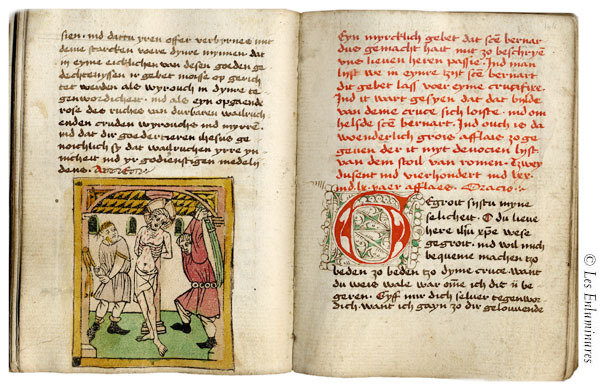 sien. ind dattu yren offer verbyrnes mit
deine starcken vuere dynre mynnen dat
in eyme eicklichen van desen goeden ge
dechtenyssen ir gebet moisse op gerich
tet werden als wyrouch in dynre te
genwordicheit. ind als eyn opgaende
rose des ruches van durbaren walruch
enden cruden wyrouchs ind myrren.
ind dat dir goedertieren ihesus ge
noichlich sy dat walruchen yrre yn
nicheit ind yr godienstigen medelij
dens. Amen
Eyn myrcklich gebet dat scē bernar
dus gemacht hait mit zo beschryen
uns lieven heren passie. Ind man
lyst we in eynre zijt scē bernart
dit gebet lass voer eyme crucifixe.
Ind it wart gesyen dat dat bilde
van deme cruce sich loiste. ind om
helsde scē bernart. Ind ouch is da
wonderlich grois afflais zo ge
geven der it myt devocien lyst
van dem stoil van romen. Tzwey
dusent ind vierhondert ind
ind lx. iaer afflaes. Oracio.
GEgroit sijstu myne
selicheit. O du lieve
here ihū xp̄e wese
gegroit. ind wil mich
bequeme machen tzo
beden zo beden tzo dyme cruce want
du weis wale war om̄e ich dit be
geren. Gyff mir dich selver tegenwor
dich. want ich gayn zo dir gelouvende
© Les Enluminures